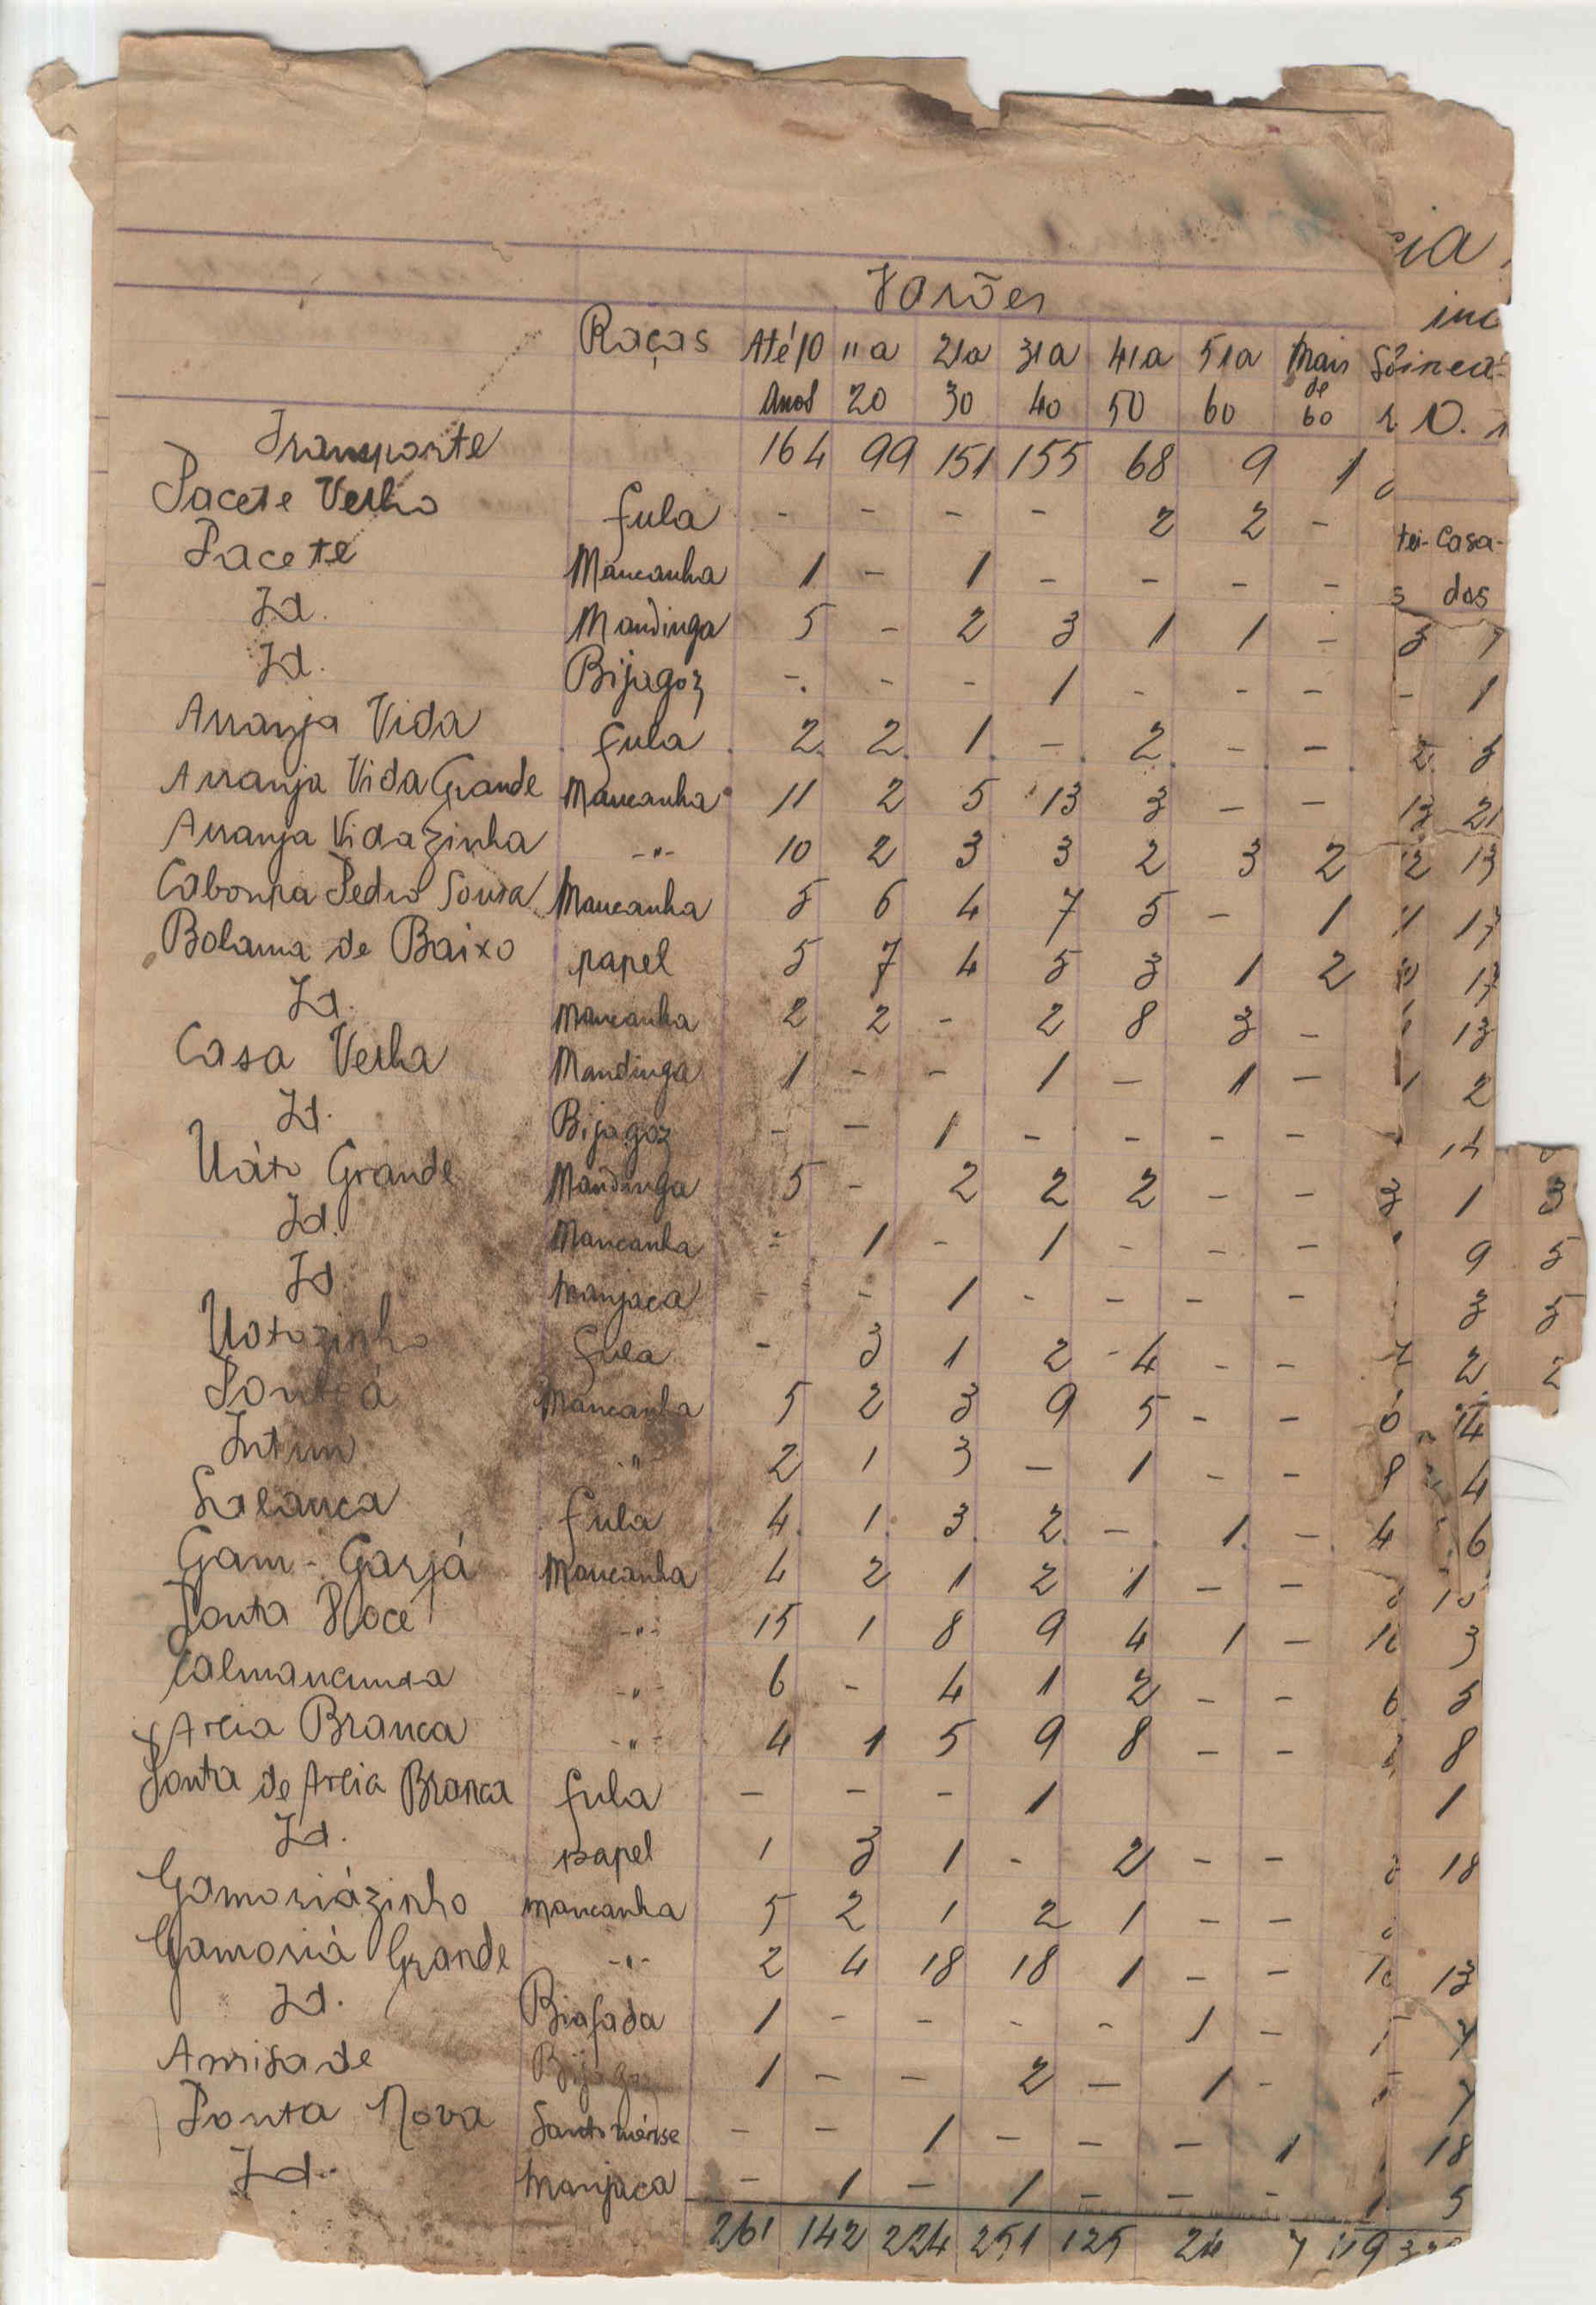 cia
Varões
inc
Raças Até 10 11 a 21 a 31 a 41 a 51 a Mais
Anos 20 30 40 50 60 de 60
Transporte 164 99 151 155 68 9 1
Pacete Velho fula - - - - 2 2 -
tei- Casa-
Pacete Mancanha 1 - 1 - - - -
dos
Id. Mandinga 5 - 2 3 1 1 - 3 7
Id. Bijagoz - - - 1 - - - - 1
Arranja Vida fula 2 2 1 - 2 - - 2 5
Arranja Vida Grande Mancanha 11 2 5 13 3 - - 13 21
Arranja Vidazinha -"- 10 2 3 3 2 3 2 12 13
Pedro Sousa Mancanha 5 6 4 7 5 - 1 11 17
Bolama de Baixo papel 5 7 4 5 3 1 2 17
Id. Mancanha 2 2 - 2 8 3 - 13
Casa Velha Mandinga 1 - - 1 - 1 - 1 2
Id. Bijagoz - - 1 - - - - 14
Uáto Grande Mandinga 5 - 2 2 2 - - 3 1 3
Id. Mancanha - 1 - 1 - - - 9 5
Id. Manjaca - - 1 - - - - 3 5
Uatozinho fula - 3 1 2 4 - - 7 2 2
Mancanha 5 2 3 9 5 - - 14
Intim " 2 1 3 - 1 - - 8 4
fula 4 1 3 2 - 1 - 4 6
Gam-Garjá Mancanha 4 2 1 2 1 - -
Ponta -"- 15 1 8 9 4 1 - 3
-"- 6 - 4 1 2 - - 6 5
Areia Branca -"- 4 1 5 9 8 - - 8
Ponta de Areia Branca fula - - - 1 1
Id. papel 1 3 1 - 2 - - 18
Gamoriázinho mancanha 5 2 1 2 1 - -
Gamoriá Grande -"- 2 4 18 18 1 - - 13
Id. Biafada 1 - - - - 1 - 7
Amisade 1 - - 2 - 1 - 7
Ponta Nova Santomense - - 1 - - - 1 18
Id. Manjaca - 1 - 1 - - - 1 5
261 142 224 251 125 24 7